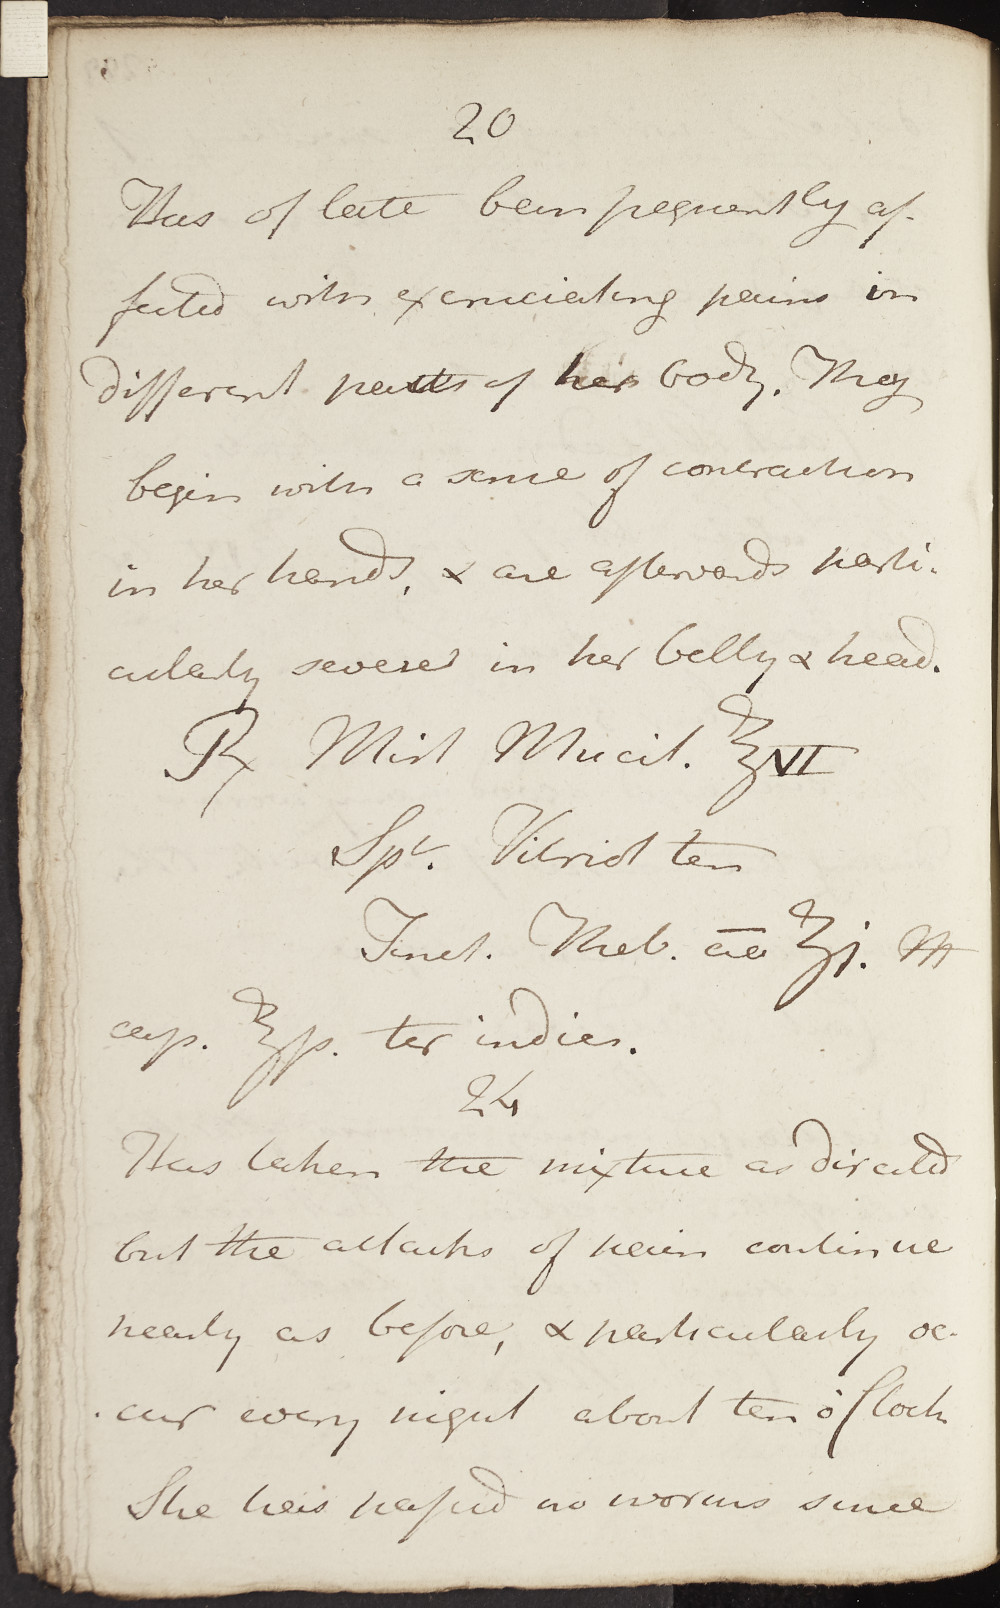 20
Has of late been frequently af-
fected with excruciating pains in
different parts of her body. They
begin with a sense of contraction
in her hands, & are afterwards parti-
cularly severe in her belly & head.
℞ Mist Mucil. ℥VI
Spt. Vitriol ten
Tinct. Theb. aa ʒj. M
cap. ℥ſs. ter indies.
24
Has taken the mixture as directed
but the attacks of pain continue
nearly as before, & particularly oc-
cur every night about ten o'Clock
She has passed no worms since